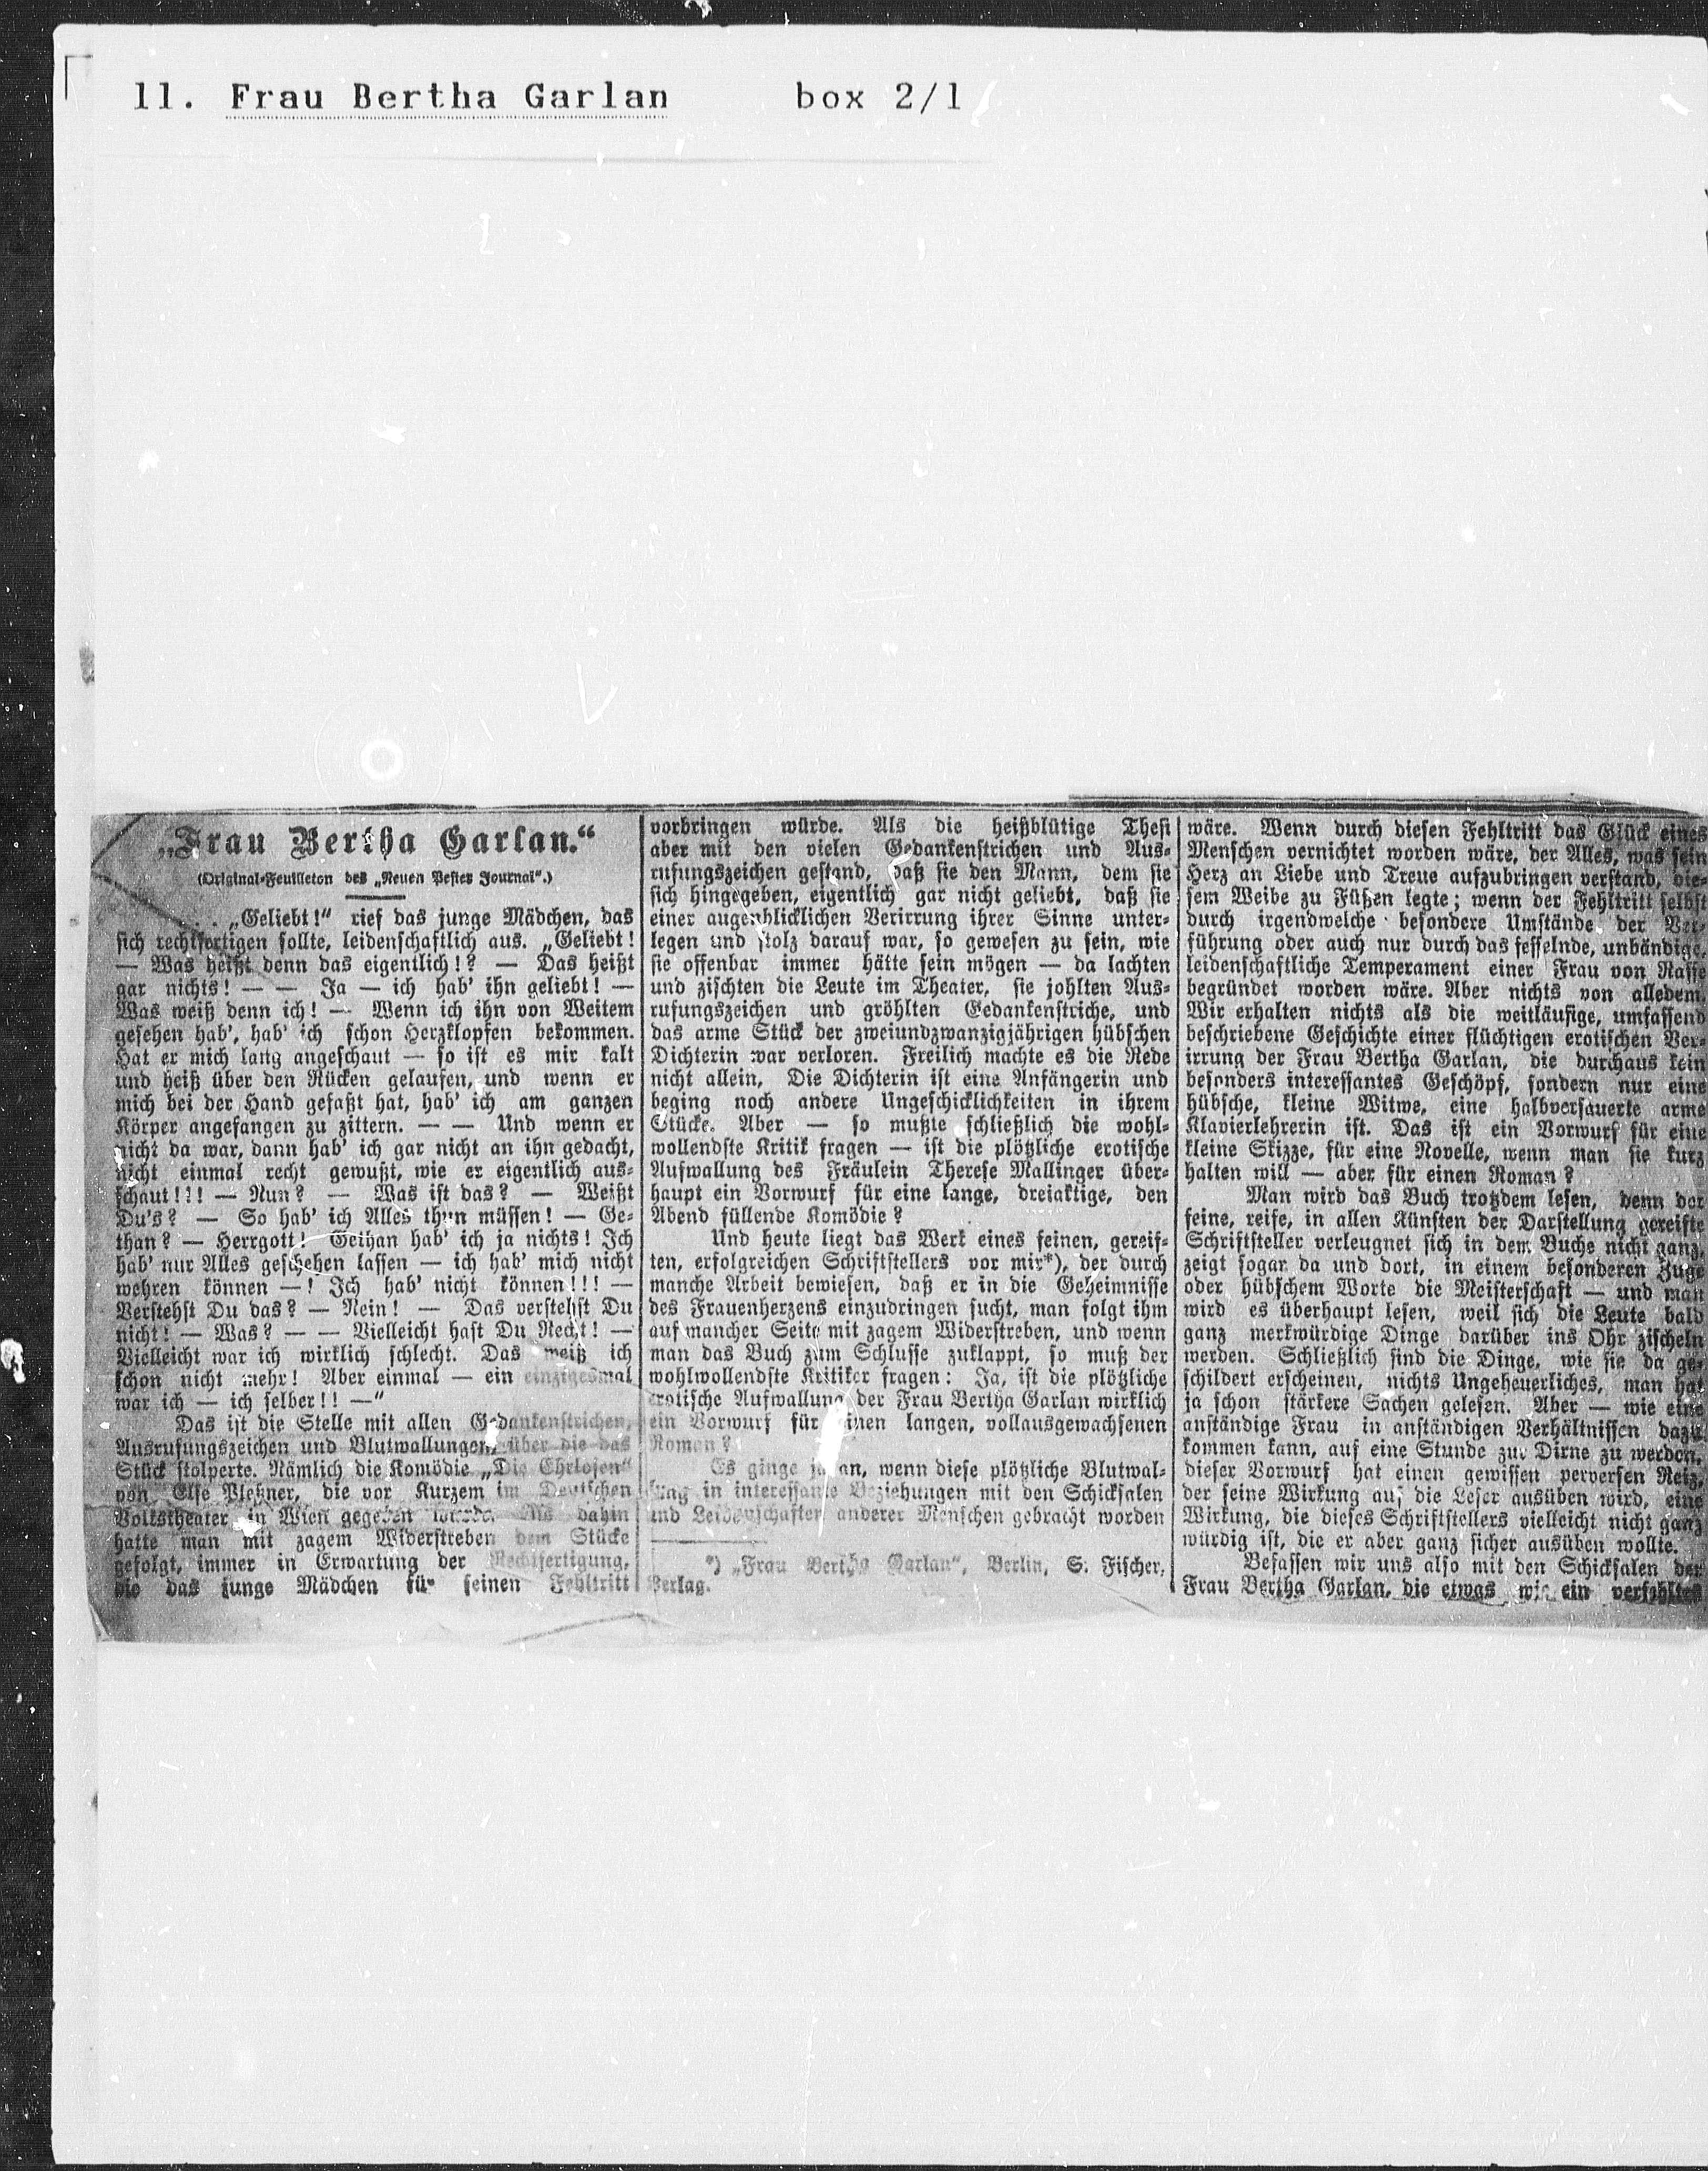 11. Frau Bertha Garlan box 2/1
„Frau Bertha Garlan.“
(Original-Feuilleton des „Neuen Pester Journal“.)
„Geliebt!“ rief das junge Mädchen, das
sich rechtfertigen sollte, leidenschaftlich aus. „Geliebt!
— Was heißt denn das eigentlich!? — Das heißt
gar nichts! — — Ja — ich hab' ihn geliebt! —
Was weiß denn ich! — Wenn ich ihn von Weitem
gesehen hab', hab' ich schon Herzklopfen bekommen.
Hat er mich lang angeschaut — so ist es mir kalt
und heiß über den Rücken gelaufen, und wenn er
mich bei der Hand gefaßt hat, hab' ich am ganzen
Körper angefangen zu zittern. — — Und wenn er
nicht da war, dann hab' ich gar nicht an ihn gedacht,
nicht einmal recht gewußt, wie er eigentlich aus-
schaut!!! — Nun? — Was ist das? — Weißt
Du's? — So hab' ich Alles thun müssen! — Ge-
than? — Herrgott! Gethan hab' ich ja nichts! Ich
hab' nur Alles geschehen lassen — ich hab' mich nicht
wehren können —! Ich hab' nicht können!!! —
Verstehst Du das? — Nein! — Das verstehst Du
nicht! — Was? — — Vielleicht hast Du Recht! —
Vielleicht war ich wirklich schlecht. Das weiß ich
schon nicht mehr! Aber einmal — ein einzigesmal
war ich — ich selber!! —“
Das ist die Stelle mit allen Gedankenstrichen,
Ausrufungszeichen und Blutwallungen, über die das
Stück stolperte. Nämlich die Komödie „Die Ehrlosen“
von Else Pleßner, die vor Kurzem im Deutschen
Volkstheater in Wien gegeben wurde. Bis dahin
hatte man mit zagem Widerstreben dem Stücke
gefolgt, immer in Erwartung der Rechtfertigung,
die das junge Mädchen für seinen Fehltritt
vorbringen würde. Als die heißblütige Thesi
aber mit den vielen Gedankenstrichen und Aus-
rufungszeichen gestand, daß sie den Mann, dem sie
sich hingegeben, eigentlich gar nicht geliebt, daß sie
einer augenblicklichen Verirrung ihrer Sinne unter-
legen und stolz darauf war, so gewesen zu sein, wie
sie offenbar immer hätte sein mögen — da lachten
und zischten die Leute im Theater, sie johlten Aus-
rufungszeichen und gröhlten Gedankenstriche, und
das arme Stück der zweiundzwanzigjährigen hübschen
Dichterin war verloren. Freilich machte es die Rede
nicht allein, Die Dichterin ist eine Anfängerin und
beging noch andere Ungeschicklichkeiten in ihrem
Stücke. Aber — so mußte schließlich die wohl-
wollendste Kritik fragen — ist die plötzliche erotische
Aufwallung des Fräulein Therese Mallinger über-
haupt ein Vorwurf für eine lange, dreiaktige, den
Abend füllende Komödie?
Und heute liegt das Werk eines feinen, gereif-
ten, erfolgreichen Schriftstellers vor mir*), der durch
manche Arbeit bewiesen, daß er in die Geheimnisse
des Frauenherzens einzudringen sucht, man folgt ihm
auf mancher Seite mit zagem Widerstreben, und wenn
man das Buch zum Schlusse zuklappt, so muß der
wohlwollendste Kritiker fragen: Ja, ist die plötzliche
erotische Aufwallung der Frau Bertha Garlan wirklich
ein Vorwurf für einen langen, vollausgewachsenen
Roman?
Es ginge ja an, wenn diese plötzliche Blutwal-
lung in interessante Beziehungen mit den Schicksalen
und Leidenschaften anderer Menschen gebracht worden
*) „Frau Bertha Garlan“, Berlin, S. Fischer,
Verlag.
wäre. Wenn durch diesen Fehltritt das Glück eines
Menschen vernichtet worden wäre, der Alles, was sein
Herz an Liebe und Treue aufzubringen verstand, die-
sem Weibe zu Füßen legte; wenn der Fehltritt selbst
durch irgendwelche besondere Umstände der Ver-
führung oder auch nur durch das fesselnde, unbändige,
leidenschaftliche Temperament einer Frau von Rasse
begründet worden wäre. Aber nichts von alledem.
Wir erhalten nichts als die weitläufige, umfassend
beschriebene Geschichte einer flüchtigen erotischen Ver-
irrung der Frau Bertha Garlan, die durchaus kein
besonders interessantes Geschöpf, sondern nur eine
hübsche, kleine Witwe, eine halbversauerte arme
Klavierlehrerin ist. Das ist ein Vorwurf für eine
kleine Skizze, für eine Novelle, wenn man sie kurz
halten will — aber für einen Roman?
Man wird das Buch trotzdem lesen, denn der
feine, reife, in allen Künsten der Darstellung gereifte
Schriftsteller verleugnet sich in dem Buche nicht ganz,
zeigt sogar da und dort, in einem besonderen Zuge
oder hübschem Worte die Meisterschaft — und man
wird es überhaupt lesen, weil sich die Leute bald
ganz merkwürdige Dinge darüber ins Ohr zischeln
werden. Schließlich sind die Dinge, wie sie da ge-
schildert erscheinen, nichts Ungeheuerliches, man hat
ja schon stärkere Sachen gelesen. Aber — wie eine
anständige Frau in anständigen Verhältnissen dazu
kommen kann, auf eine Stunde zur Dirne zu werden,
dieser Vorwurf hat einen gewissen perversen Reiz,
der seine Wirkung auf die Leser ausüben wird, eine
Wirkung, die dieses Schriftstellers vielleicht nicht ganz
würdig ist, die er aber ganz sicher ausüben wollte.
Befassen wir uns also mit den Schicksalen der
Frau Bertha Garlan, die etwas wie ein verfehltes